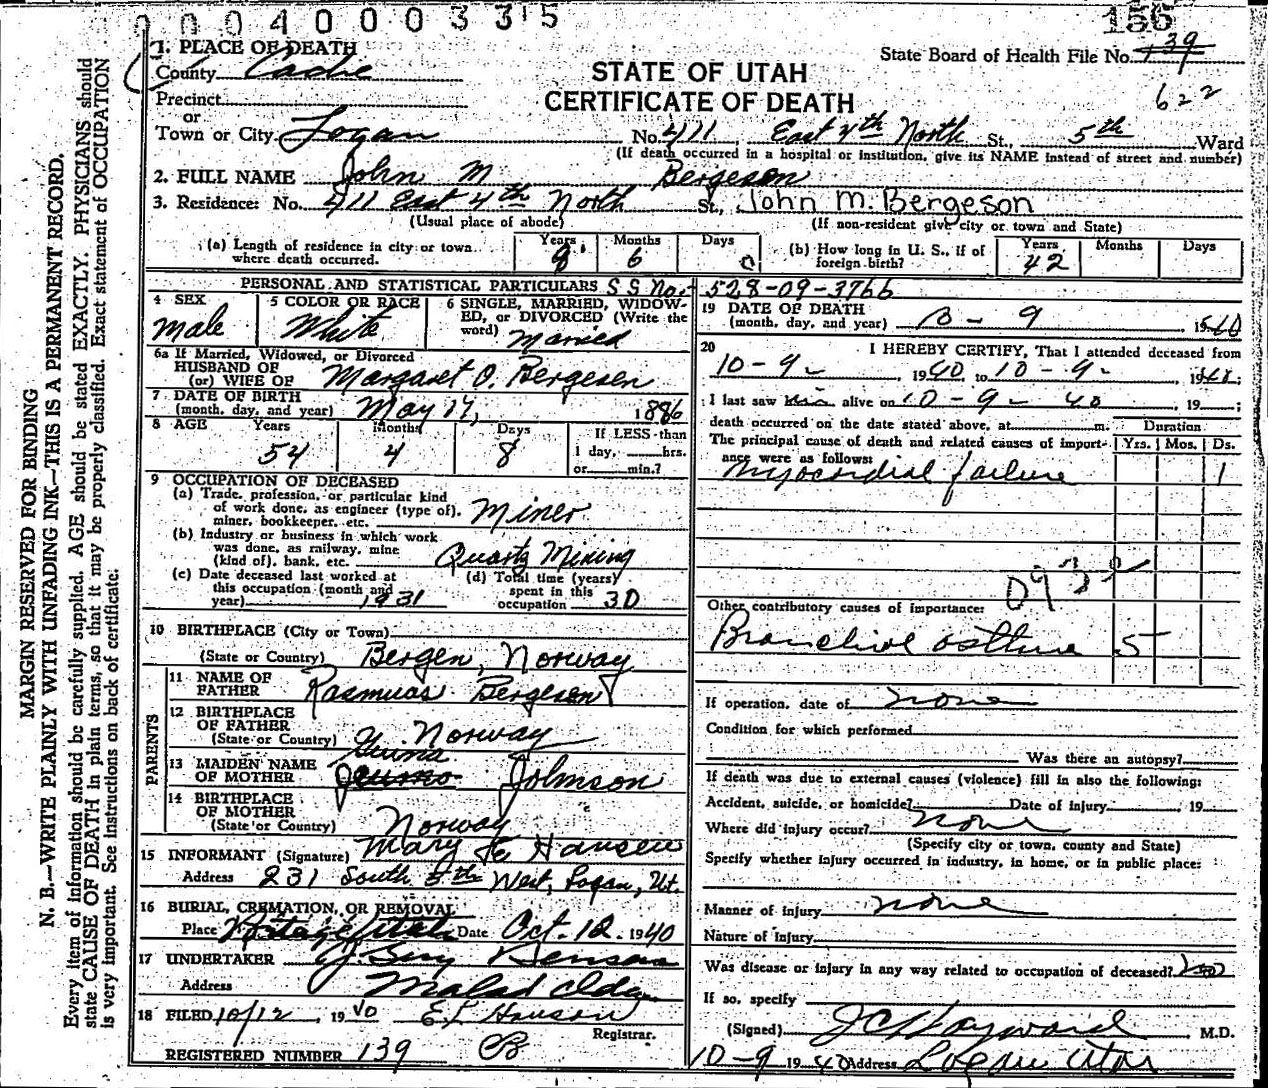 0004000335
156
1. PLACE OF DEATH
County Cache
State Board of Health File No. 139
622
STATE OF UTAH
CERTIFICATE OF DEATH
Precinct
or
Town or City Logan No. 411 East 4th North St., 5th Ward
(If death occurred in a hospital or institution, give its NAME instead of street and number)
2. FULL NAME John M Bergesen
3. Residence: No. 411 East 4th North St., John M. Bergeson
(Usual place of abode) (If non-resident give city or town and State)
(a) Length of residence in city or town where death occurred. Years 9 Months 6 Days 0 (b) How long in U. S., if of foreign birth? Years 42 Months Days
PERSONAL AND STATISTICAL PARTICULARS S S No. - 528-09-3766
4 SEX Male
5 COLOR OR RACE White
6 SINGLE, MARRIED, WIDOWED, or DIVORCED (Write the word) Married
6a If Married, Widowed, or Divorced
HUSBAND OF
(or) WIFE OF Margaret O. Bergesen
7 DATE OF BIRTH
(month, day, and year) May 17, 1886
8 AGE Years 54 Months 4 Days 8 If LESS than
1 day, hrs.
or min.?
9 OCCUPATION OF DECEASED
(a) Trade, profession, or particular kind
of work done, as engineer (type of),
miner, bookkeeper, etc. Miner
(b) Industry or business in which work
was done, as railway, mine
(kind of), bank, etc. Quartz Mining
(c) Date deceased last worked at
this occupation (month and
year) 1931
(d) Total time (years)
spent in this
occupation 30
10 BIRTHPLACE (City or Town)
(State or Country) Bergen, Norway
PARENTS
11 NAME OF
FATHER Rasmuas Bergesen
12 BIRTHPLACE
OF FATHER
(State or Country) Norway
13 MAIDEN NAME
OF MOTHER Johnson
14 BIRTHPLACE
OF MOTHER
(State or Country) Norway
15 INFORMANT (Signature) Mary Hansen
Address 231 South 5th West, Logan, Ut.
16 BURIAL, CREMATION, OR REMOVAL
Place Date Oct. 12. 1940
17 UNDERTAKER
Address Malad Ida
18 FILED 10/12, 1940 E. L. Hanson
Registrar.
REGISTERED NUMBER 139
19 DATE OF DEATH
(month, day, and year) 9 1940
20 I HEREBY CERTIFY, That I attended deceased from
10-9- 1940, to 10-9-, 1940;
I last saw him alive on 10-9-40, 19 ;
death occurred on the date stated above, at m. Duration
The principal cause of death and related causes of importance were as follows: Yrs. Mos. Ds.
Myocardial failure 1
Other contributory causes of importance:
Bronchial asthma 5
If operation, date of none
Condition for which performed
Was there an autopsy?
If death was due to external causes (violence) fill in also the following:
Accident, suicide, or homicide? Date of injury , 19
Where did injury occur? none
(Specify city or town, county and State)
Specify whether injury occurred in industry, in home, or in public place:
Manner of injury none
Nature of injury
Was disease or injury in any way related to occupation of deceased?
If so, specify
(Signed) J C Hayward M.D.
10-9 1940 Address Logan Utah
MARGIN RESERVED FOR BINDING
N. B.—WRITE PLAINLY WITH UNFADING INK—THIS IS A PERMANENT RECORD.
Every item of information should be carefully supplied. AGE should be stated EXACTLY. PHYSICIANS should
state CAUSE OF DEATH in plain terms, so that it may be properly classified. Exact statement of OCCUPATION
is very important. See instructions on back of certificate.